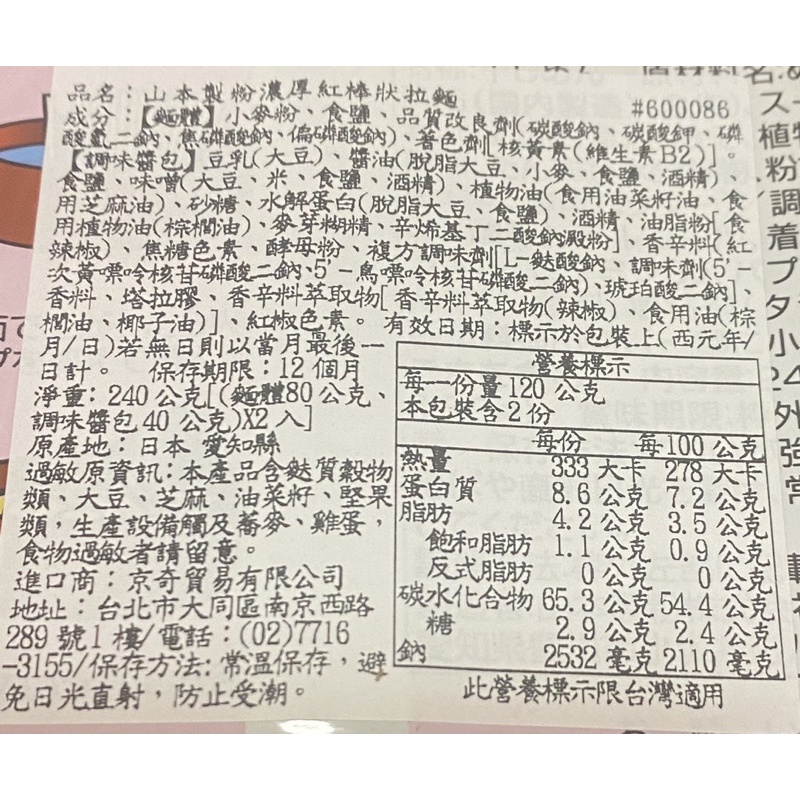 品名：山本製粉濃厚紅棒狀拉麵
#600086
成分：【麵體】小麥粉、食鹽、品質改良劑(碳酸鈉、碳酸鉀、磷
酸氫二鈉、焦磷酸鈉、偏磷酸鈉)、著色劑[核黃素(維生素B2)]。
【調味醬包】豆乳(大豆)、醬油(脫脂大豆、小麥、食鹽、酒精)、
食鹽、味噌(大豆、米、食鹽、酒精)、植物油(食用油菜籽油、食
用芝麻油)、砂糖、水解蛋白(脫脂大豆、食鹽)、酒精、油脂粉[食
用植物油(棕櫚油)、麥芽糊精、辛烯基丁二酸鈉澱粉]、香辛料(紅
辣椒)、焦糖色素、酵母粉、複方調味劑[L-麩酸鈉、調味劑(5'-
次黃嘌呤核苷磷酸二鈉、5'-鳥嘌呤核苷磷酸二鈉)、琥珀酸二鈉]、
香料、塔拉膠、香辛料萃取物[香辛料萃取物(辣椒)、食用油(棕
櫚油、椰子油)]、紅椒色素。 有效日期：標示於包裝上(西元年/
月/日)若無日則以當月最後一
日計。 保存期限：12個月
淨重：240公克[(麵體80公克、
調味醬包40公克)X2入]
原產地：日本 愛知縣
過敏原資訊：本產品含麩質穀物
類、大豆、芝麻、油菜籽、堅果
類，生產設備觸及蕎麥、雞蛋，
食物過敏者請留意。
進口商：京奇貿易有限公司
地址：台北市大同區南京西路
289號1樓/電話：(02)7716
-3155/保存方法：常溫保存，避
免日光直射，防止受潮。
營養標示
每一份量120公克
本包裝含2份
每份 每100公克
熱量 333 大卡 278 大卡
蛋白質 8.6 公克 7.2 公克
脂肪 4.2 公克 3.5 公克
飽和脂肪 1.1 公克 0.9 公克
反式脂肪 0 公克 0 公克
碳水化合物 65.3 公克 54.4 公克
糖 2.9 公克 2.4 公克
鈉 2532 毫克 2110 毫克
此營養標示限台灣適用